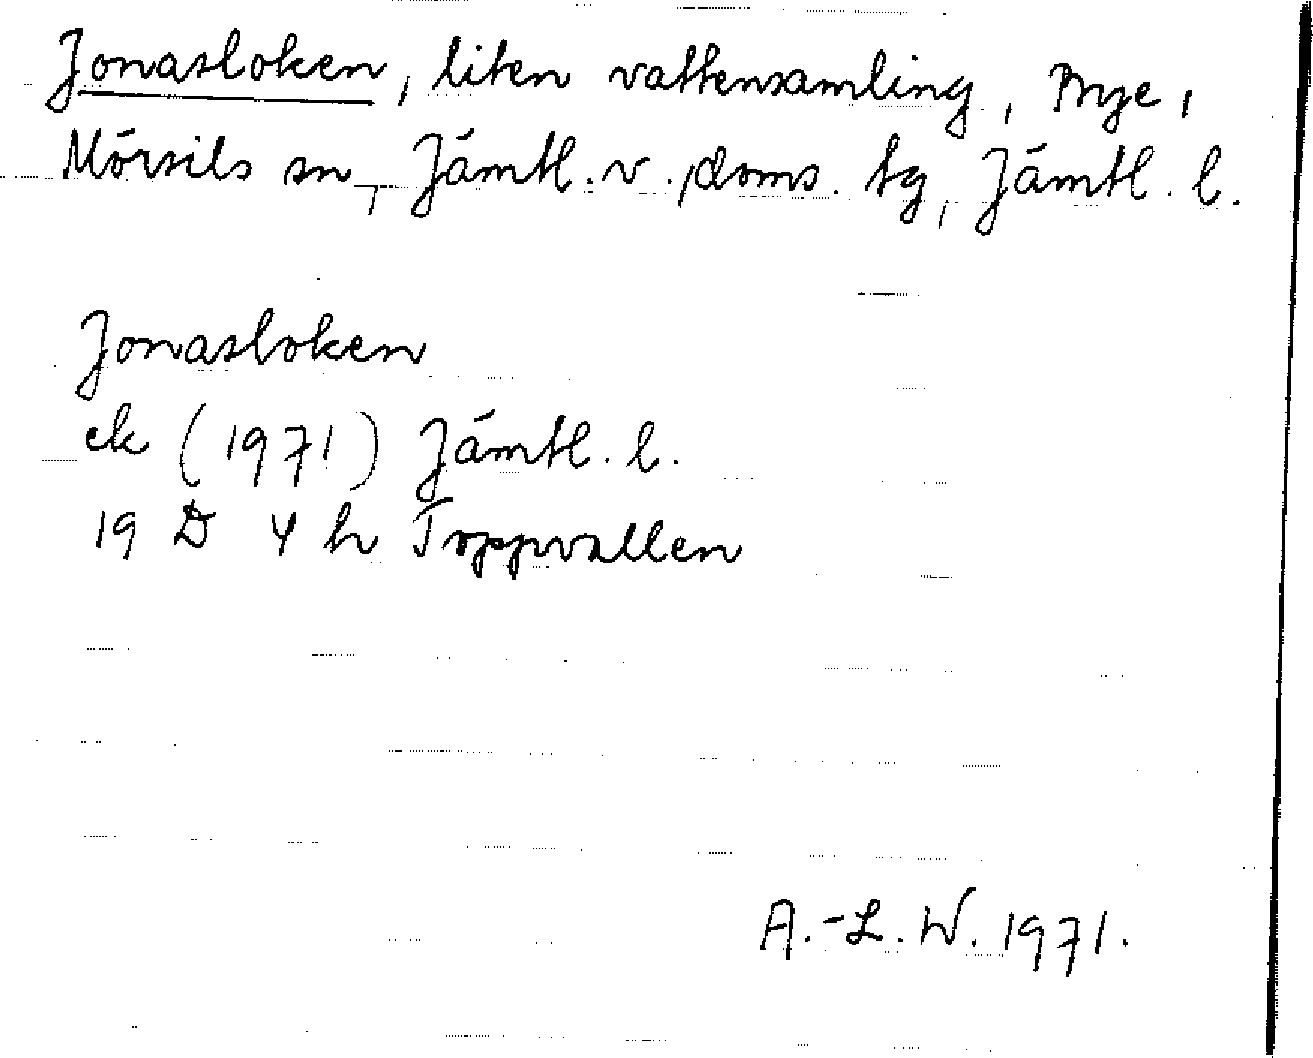 Jonasloken, liten vattensamling,
Mörsils sn, Jämtl. v. doms. tg, Jämtl. l.
Jonasloken
ek (1971) Jämtl. l.
19 D 4 h Toppvallen
A.-L. W. 1971.